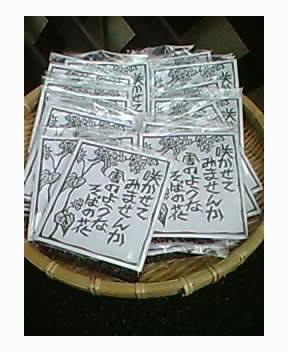 咲かせて
みませんか
雪のような
そばの花
咲かせて
みませんか
雪のような
そばの花